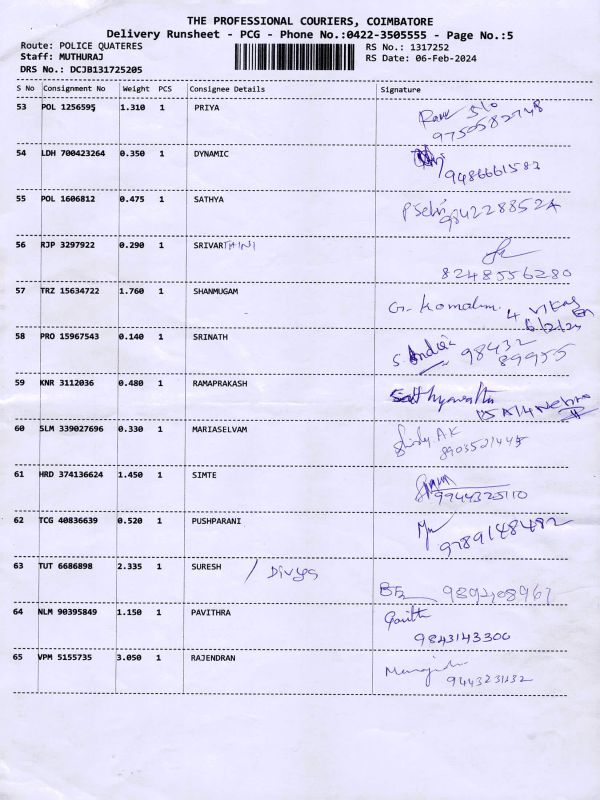 THE PROFESSIONAL COURIERS, COIMBATORE
Delivery Runsheet - PCG - Phone No.:0422-3505555 - Page No.:5
Route: POLICE QUATERES RS No.: 1317252
Staff: MUTHURAJ RS Date: 06-Feb-2024
DRS No.: DCJB131725205
S No Consignment No Weight PCS Consignee Details Signature
53 POL 1256595 1.310 1 PRIYA
9750582748
54 LDH 700423264 0.350 1 DYNAMIC
9486661582
55 POL 1606812 0.475 1 SATHYA P Selvi 9842288524
56 RJP 3297922 0.290 1 SRIVARTHINI
8248556280
57 TRZ 15634722 1.760 1 SHANMUGAM G. 4
6/2/24
58 PRO 15967543 0.140 1 SRINATH S. 98432
89955
59 KNR 3112036 0.480 1 RAMAPRAKASH
15 A/4 Nehru
60 SLM 339027696 0.330 1 MARIASELVAM A.K
8903521445
61 HRD 374136624 1.450 1 SIMTE
9944325110
62 TCG 40836639 0.520 1 PUSHPARANI
9789148482
63 TUT 6686898 2.335 1 SURESH / Divya
64 NLM 90395849 1.150 1 PAVITHRA
9843143300
65 VPM 5155735 3.050 1 RAJENDRAN